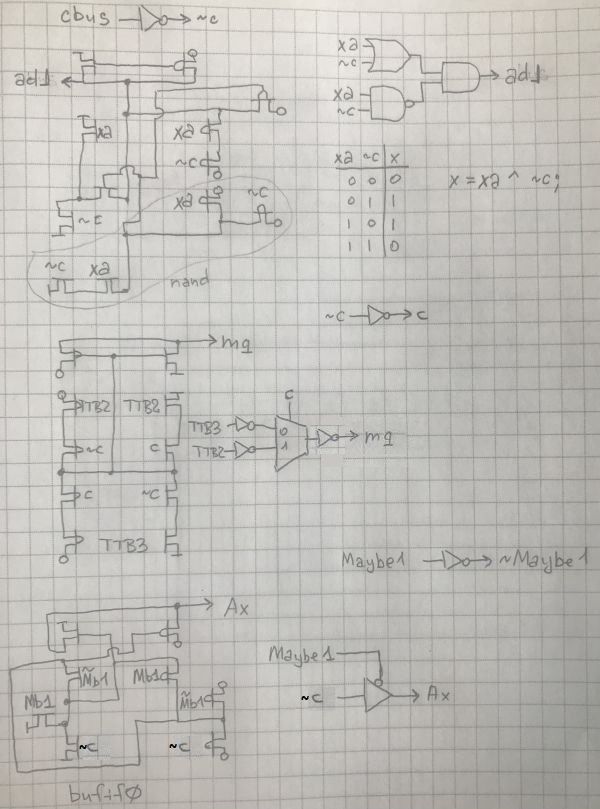 cbus ~c
xa
~c
ad1
xa
~c
ad1
xa
xa
~c
xa ~c x
0 0 0
0 1 1
1 0 1
1 1 0
x = xa ^ ~c;
xa
~c
~c
~c xa
nand
~c c
mq
TTB2 TTB2
~c c
c ~c
TTB3
c
TTB3 0
TTB2 1
mq
Maybe1 ~Maybe1
Ax
~Mb1 Mb1
Mb1 ~Mb1
~c ~c
bufif0
Maybe1
~c Ax